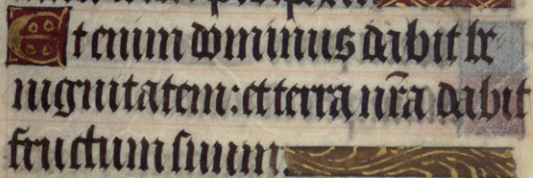 Etenim dominus dabit be
nignitatem: et terra nr̃a dabit
fructum suum.